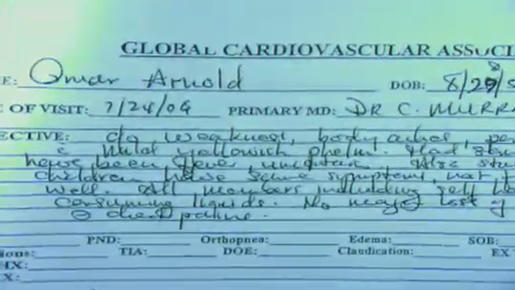 GLOBAL CARDIOVASCULAR ASSOCI
E: Omar Arnold DOB: 8/29/5
E OF VISIT: 7/28/09 PRIMARY MD: DR C. MURRA
ECTIVE: c/o weakness, body aches, pe
c mild yellowish phelm. Had
have been fever Also
children have same symptoms, not f
well. All members including self
consuming liquids. No major lost of
chest pain
PND: Orthopnea: Edema: SOB:
sions: TIA: DOE: Claudication: EX
HX:
X: